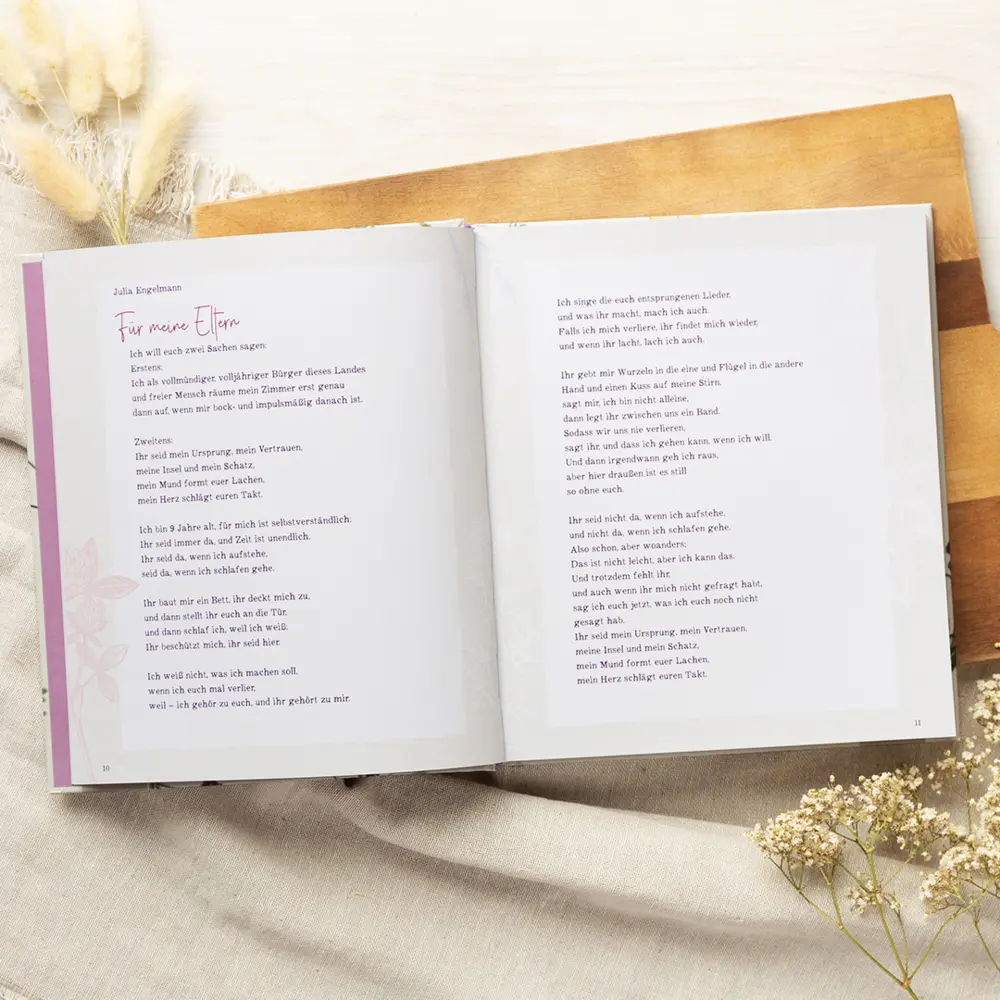 Julia Engelmann
Für meine Eltern
Ich will euch zwei Sachen sagen:
Erstens:
Ich als vollmündiger, volljähriger Bürger dieses Landes
und freier Mensch räume mein Zimmer erst genau
dann auf, wenn mir bock- und impulsmäßig danach ist.
Zweitens:
Ihr seid mein Ursprung, mein Vertrauen,
meine Insel und mein Schatz,
mein Mund formt euer Lachen,
mein Herz schlägt euren Takt.
Ich bin 9 Jahre alt, für mich ist selbstverständlich:
Ihr seid immer da, und Zeit ist unendlich.
Ihr seid da, wenn ich aufstehe,
seid da, wenn ich schlafen gehe.
Ihr baut mir ein Bett, ihr deckt mich zu,
und dann stellt ihr euch an die Tür,
und dann schlaf ich, weil ich weiß:
Ihr beschützt mich, ihr seid hier.
Ich weiß nicht, was ich machen soll,
wenn ich euch mal verlier,
weil – ich gehör zu euch, und ihr gehört zu mir.
10
Ich singe die euch entsprungenen Lieder,
und was ihr macht, mach ich auch.
Falls ich mich verliere, ihr findet mich wieder,
und wenn ihr lacht, lach ich auch.
Ihr gebt mir Wurzeln in die eine und Flügel in die andere
Hand und einen Kuss auf meine Stirn,
sagt mir, ich bin nicht alleine,
dann legt ihr zwischen uns ein Band.
Sodass wir uns nie verlieren,
sagt ihr, und dass ich gehen kann, wenn ich will.
Und dann irgendwann geh ich raus,
aber hier draußen ist es still
so ohne euch.
Ihr seid nicht da, wenn ich aufstehe,
und nicht da, wenn ich schlafen gehe.
Also schon, aber woanders;
Das ist nicht leicht, aber ich kann das.
Und trotzdem fehlt ihr,
und auch wenn ihr mich nicht gefragt habt,
sag ich euch jetzt, was ich euch noch nicht
gesagt hab.
Ihr seid mein Ursprung, mein Vertrauen,
meine Insel und mein Schatz,
mein Mund formt euer Lachen,
mein Herz schlägt euren Takt.
11